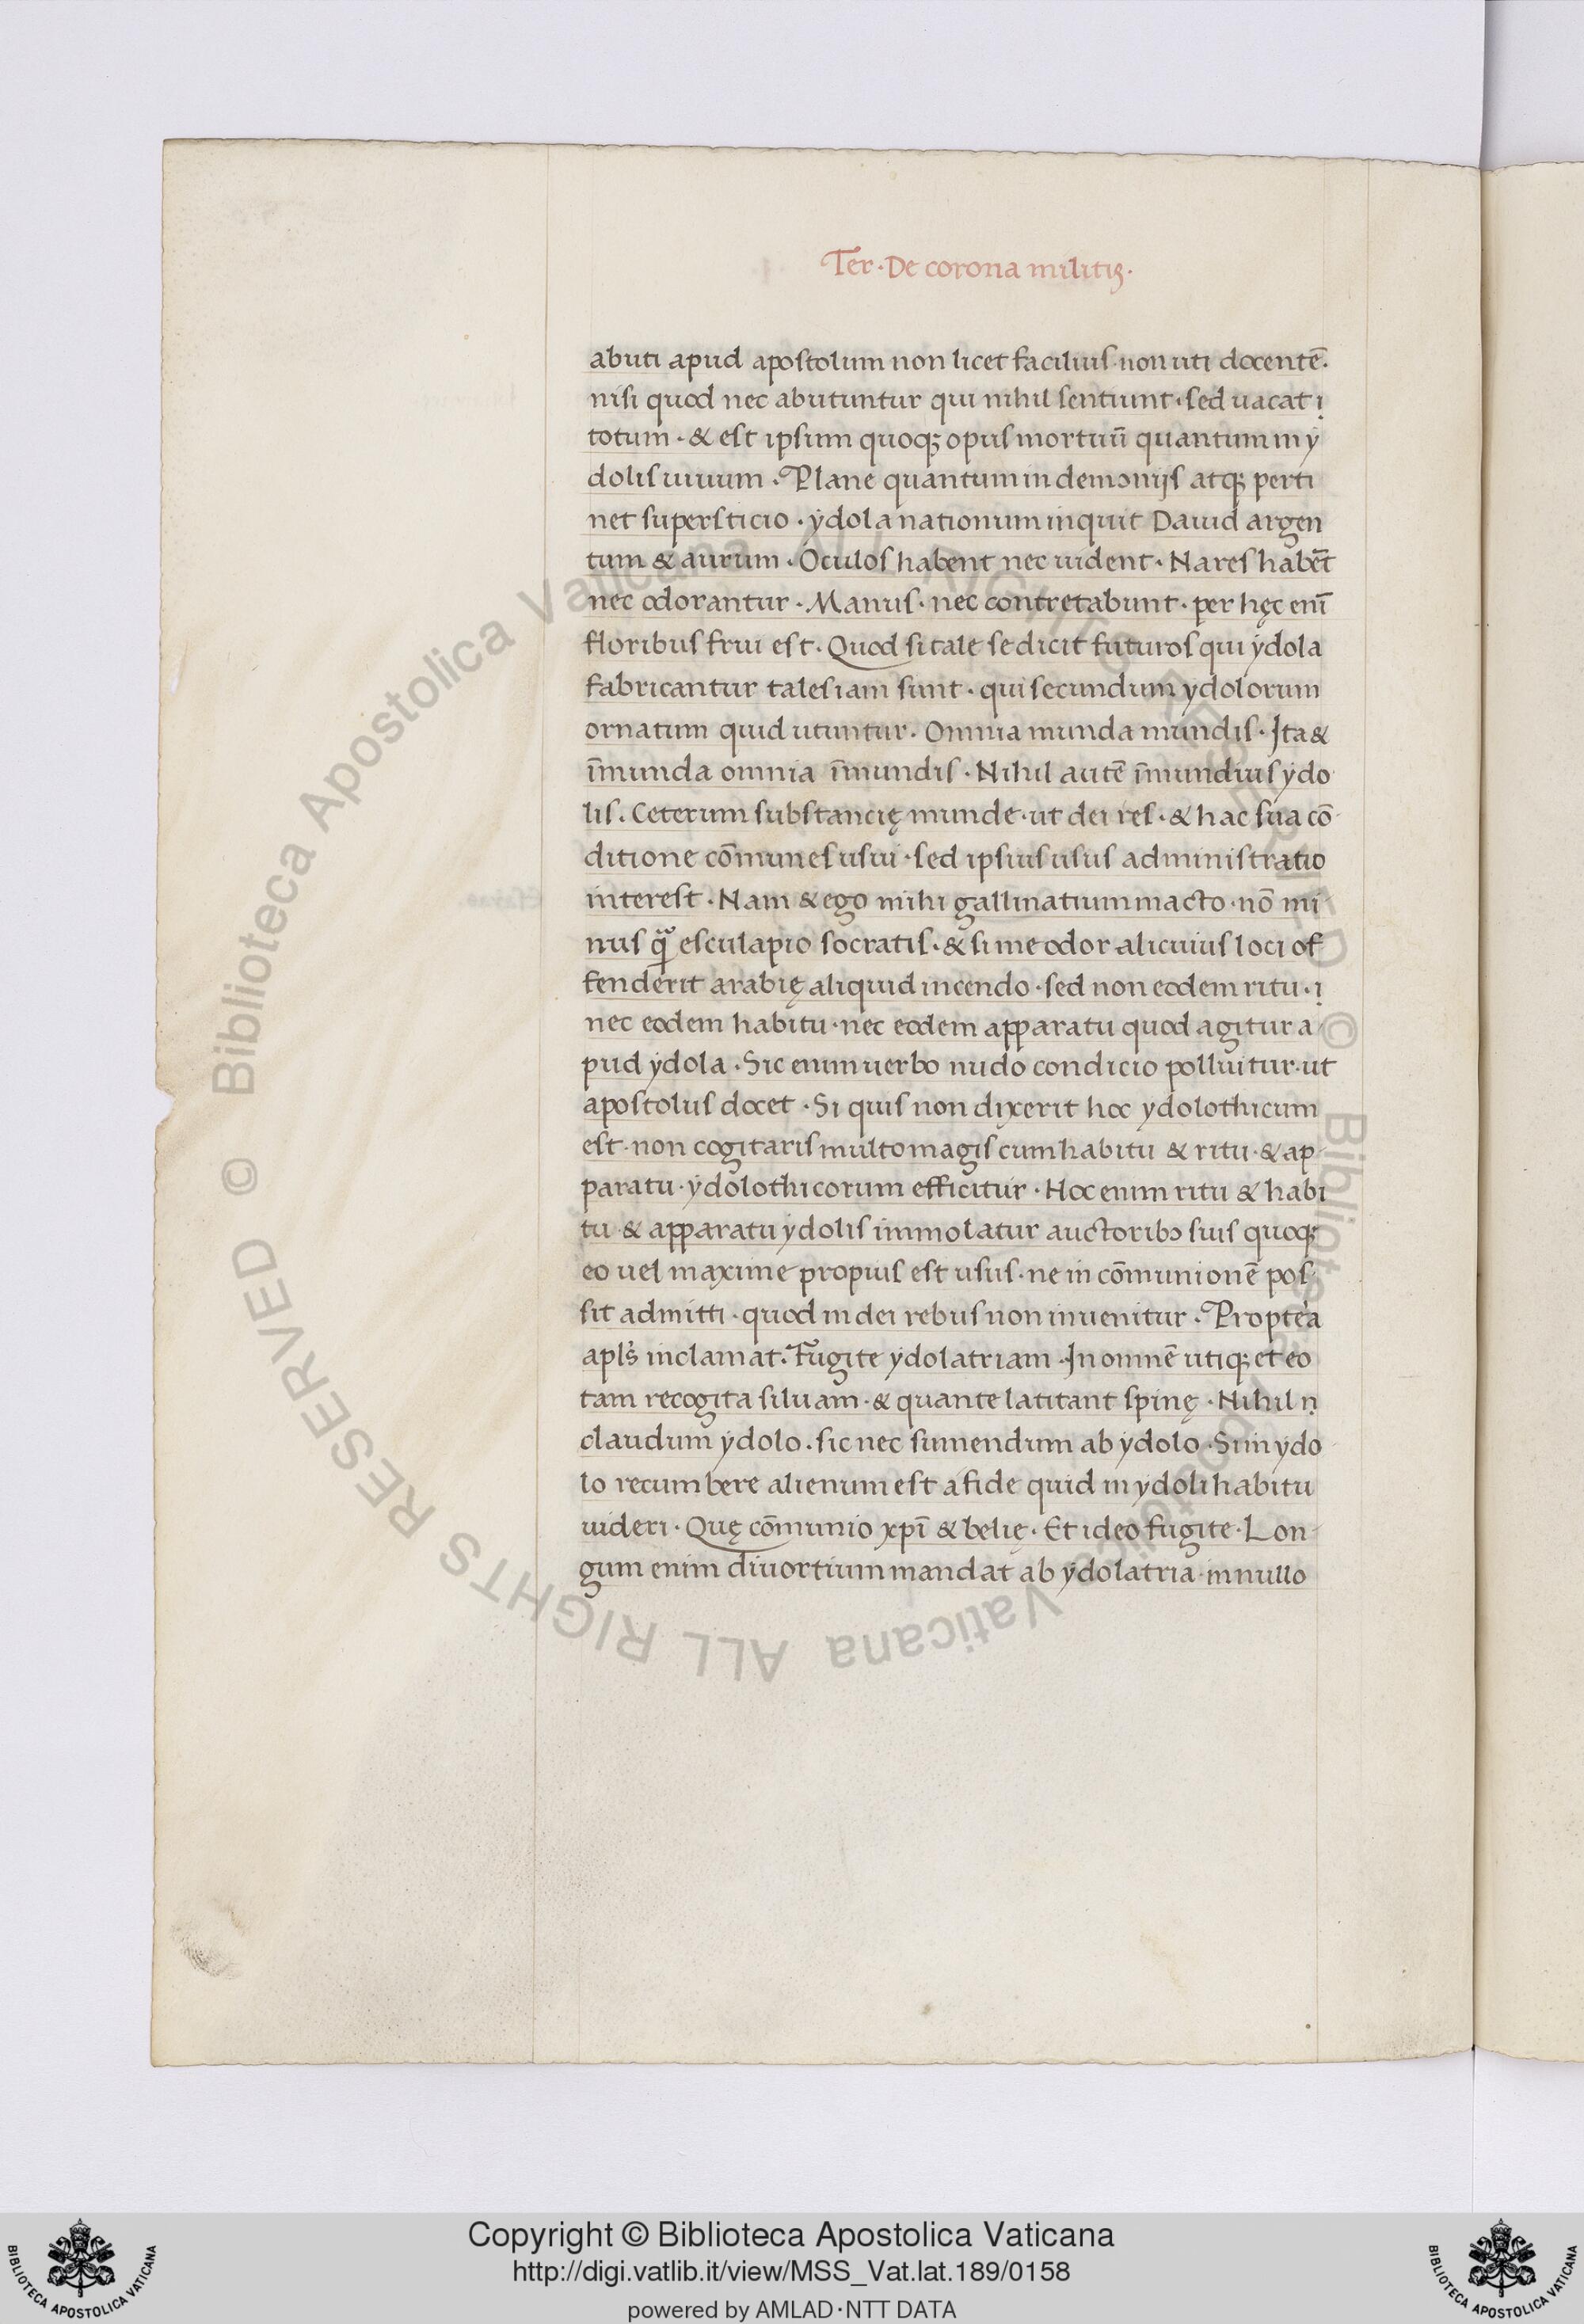 Ter · De corona militis ·
abuti apud apostolum non licet facilius · non uti docentē ·
nisi quod nec abutuntur qui nihil sentiunt · sed uacat ı
totum · & est ipsum quoq; opus mortuū quantum in y
dolis uiuum · Plane quantum in demonijs atq; perti
net supersticio · ydola nationum inquit Dauid argen
tum & aurum · Oculos habent nec uident · Nares habēt
nec odorantur · Manus · nec contretabunt · per hęc enī
floribus frui est · Quod si tale se dicit futuros qui ydola
fabricantur tales iam sunt · qui secundum ydolorum
ornatum quid utuntur · Omnia munda mundis · Ita &
īmunda omnia īmundis · Nihil autē īmundius ydo
lis · Ceterum substancię munde · ut dei res · & hac sua cō
ditione cōmunes usui · sed ipsius usus administratio
interest · Nam & ego mihi gallinatium macto · nō mi
nus quā esculapio socratis · & si me odor alicuius loci of
fenderit arabię aliquid incendo · sed non eodem ritu · ı
nec eodem habitu · nec eodem apparatu quod agitur a-
pud ydola · Sic enim uerbo nudo condicio polluitur · ut
apostolus docet · Si quis non dixerit hoc ydolothicum
est · non cogitaris multo magis cum habitu & ritu · & ap-
paratu · ydolothicorum efficitur · Hoc enim ritu & habi
tu · & apparatu ydolis immolatur auctoribꝰ suis quoq;
eo uel maxime propius est usus · ne in cōmunionē pos-
sit admitti · quod in dei rebus non inuenitur · Proptea
apl's inclamat · Fugite ydolatriam · In omnē utiq; et eo
tam recogita siluam · & quante latitant spinę · Nihil n
claudum ydolo · sic nec sumendum ab ydolo · Si in ydo-
lo recumbere alienum est a fide quid in ydoli habitu
uideri · Quę cōmunio xpī & belię · Et ideo fugite · Lon-
gum enim diuortium mandat ab ydolatria · in nullo
© Biblioteca Apostolica Vaticana ALL RIGHTS RESERVED © Biblioteca Apostolica Vaticana ALL RIGHTS RESERVED
Copyright © Biblioteca Apostolica Vaticana
http://digi.vatlib.it/view/MSS_Vat.lat.189/0158
powered by AMLAD·NTT DATA
BIBLIOTECA APOSTOLICA VATICANA
BIBLIOTECA APOSTOLICA VATICANA